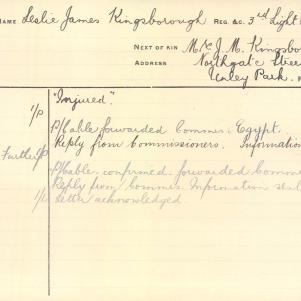 NAME Leslie James Kingsborough REG. &C. 3rd Light
NEXT OF KIN Mrs J. M. Kingsbo
ADDRESS Northgate Stree
Unley Park.
1/P "Injured".
P/Cable forwarded Commrs. Egypt.
Reply from Commissioners. Information
Further 1/P P/Cable. confirmed. forwarded Comm
Reply from Commrs. Information stat
Letter acknowledged